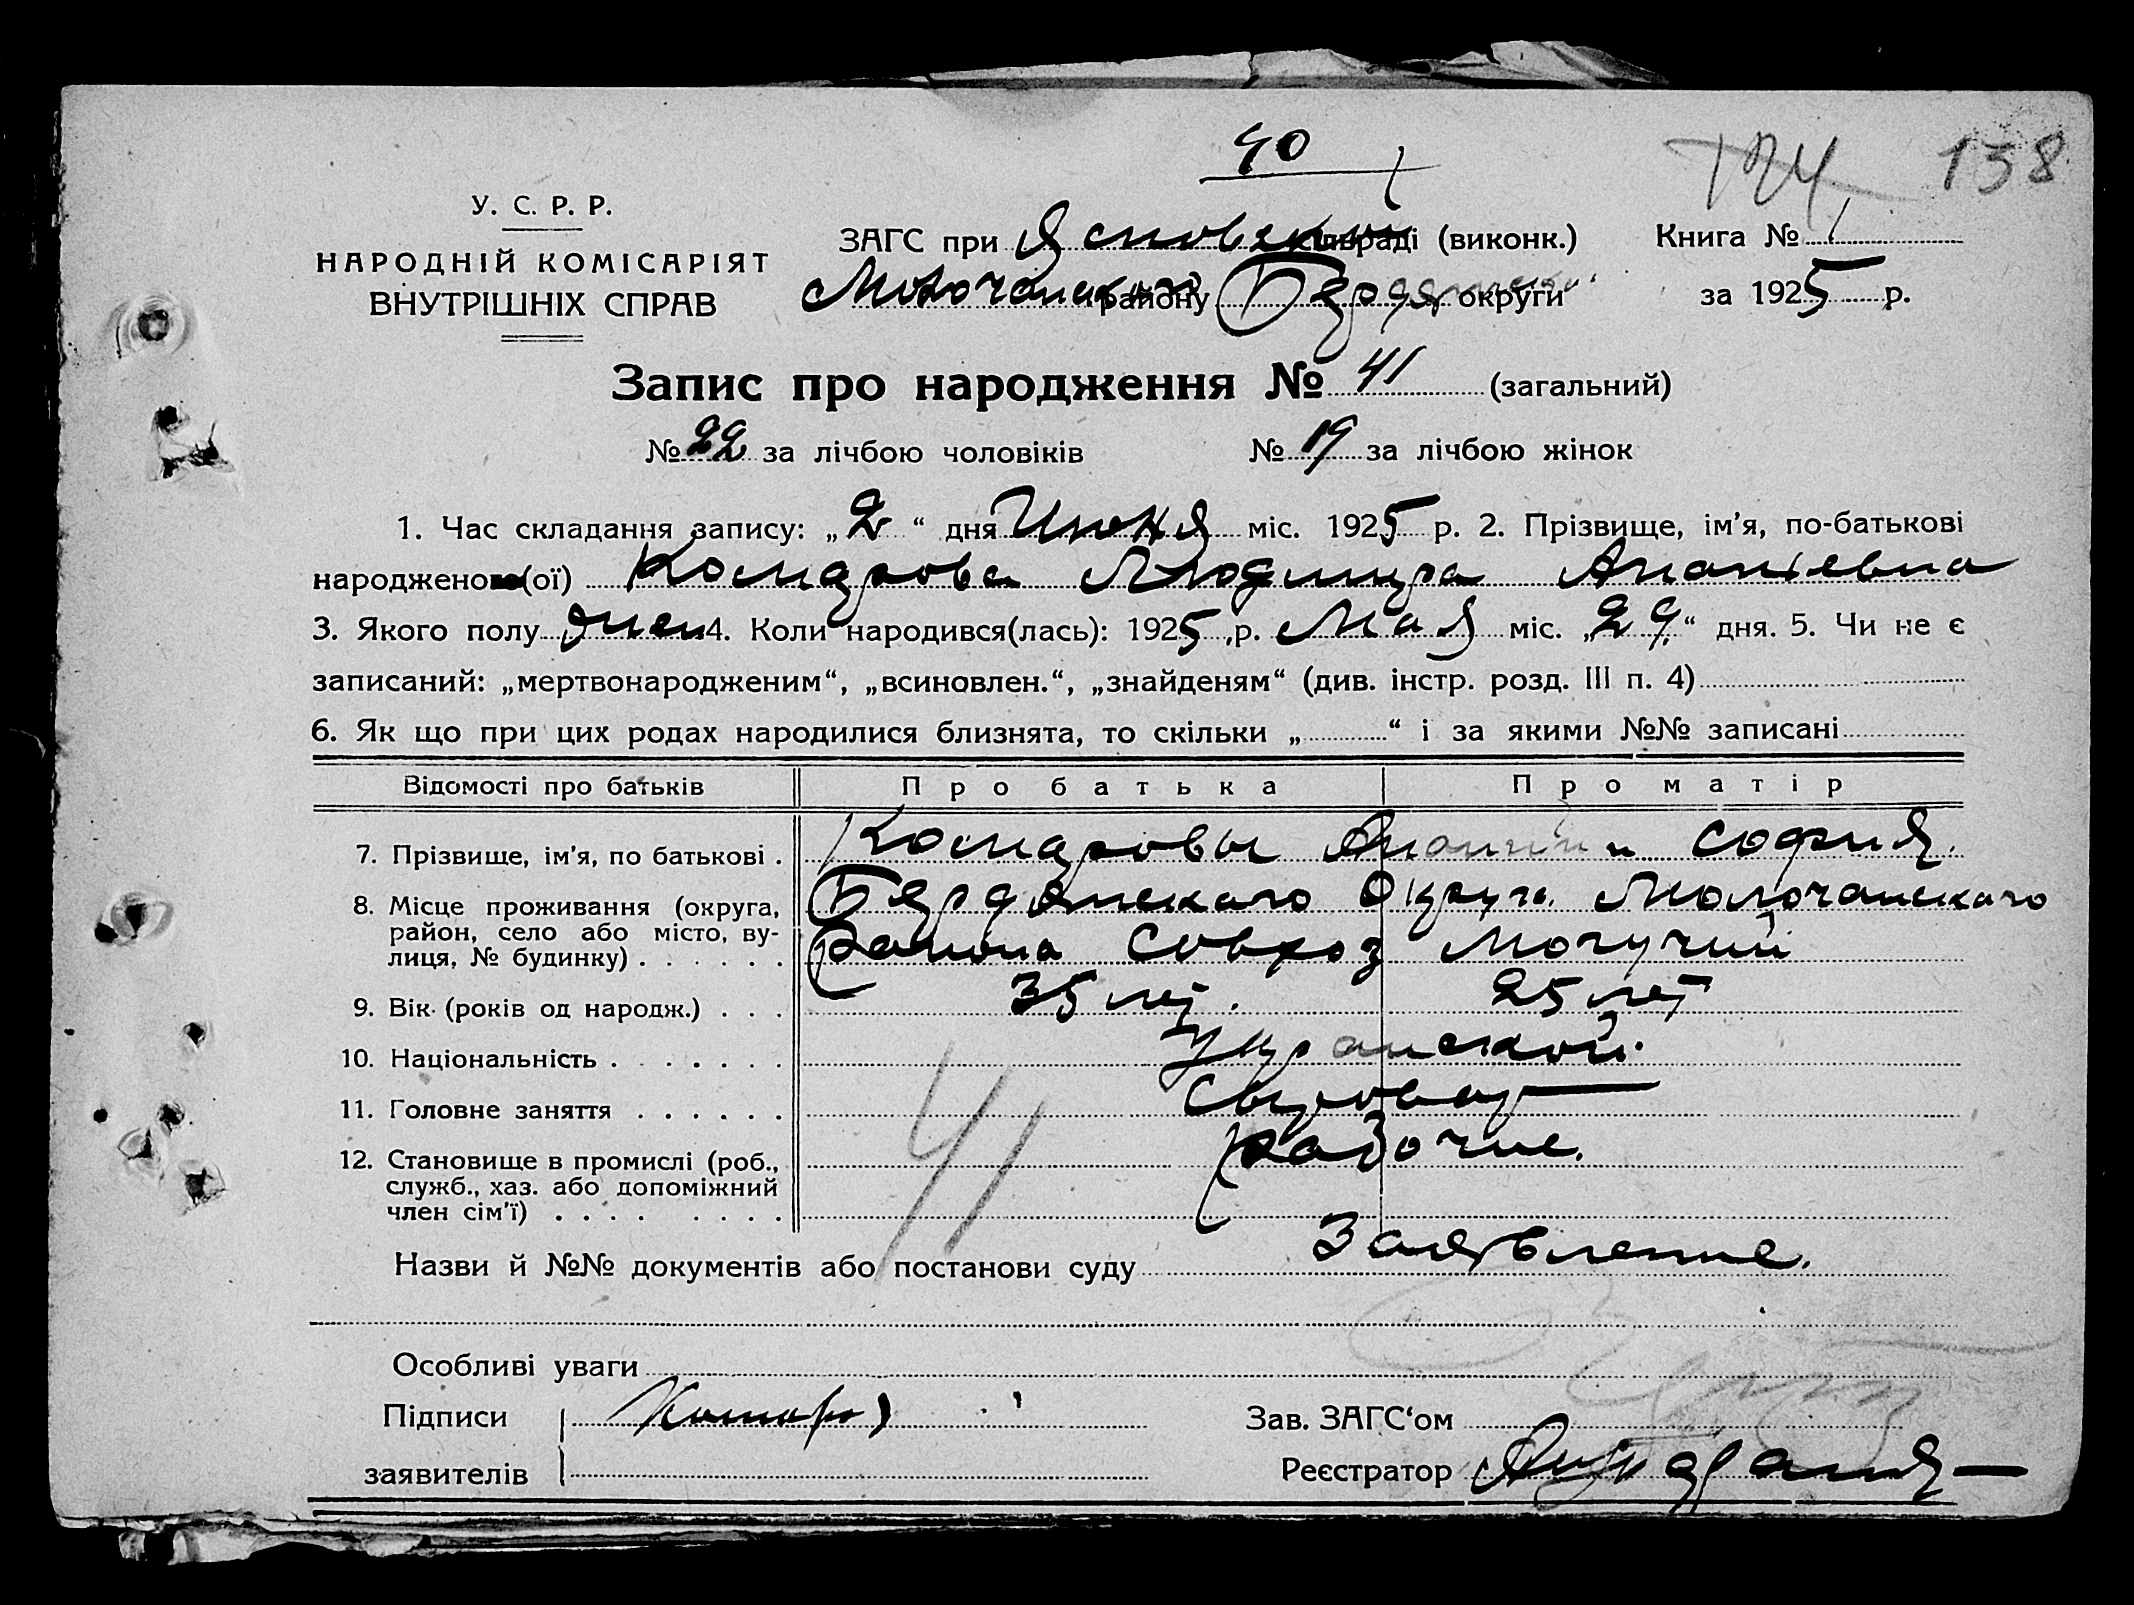 40
124 138
У. С. Р. Р.
НАРОДНІЙ КОМІСАРІЯТ
ВНУТРІШНІХ СПРАВ
ЗАГС при сільраді (виконк.)
Молочанском району Бердянской округи
Книга № 1
за 1925 р.
Запис про народження № 41 (загальний)
№ 22 за лічбою чоловіків № 19 за лічбою жінок
1. Час складання запису: „2“ дня Июня міс. 1925 р. 2. Прізвище, ім'я, по-батькові
народженого(ої) Комарова Людмира Ананіевна
3. Якого полу жен 4. Коли народився(лась): 1925 р. Мая міс. „29“ дня. 5. Чи не є
записаний: „мертвонародженим“, „всиновлен.“, „знайденям“ (див. інстр. розд. III п. 4)
6. Як що при цих родах народилися близнята, то скільки „ “ і за якими №№ записані
Відомості про батьків Про батька Про матір
7. Прізвище, ім'я, по батькові . Комаровы Ананий и София.
8. Місце проживання (округа, Бердянскаго Округа Молочанскаго
район, село або місто, ву-
лиця, № будинку) . . . . . . района Совхоз Могучий
9. Вік (років од народж.) . . . 35 лет. 25 лет
10. Національність . . . . . . .
11. Головне заняття . . . . . .
12. Становище в промислі (роб., рабочие.
служб., хаз. або допоміжний
член сім'ї) . . . . . . . .
41
Назви й №№ документів або постанови суду Заявление.
Особливі уваги
Підписи
заявителів
Зав. ЗАГС‘ом
Реєстратор